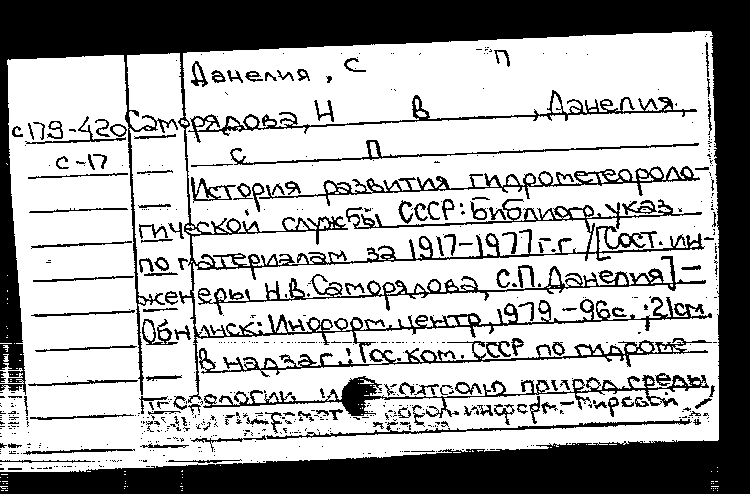 Данелия, С П
с179-420 Саморядова, Н В , Данелия,
с-17 С П
История развития гидрометеороло-
гической службы СССР: Библиогр. указ.
по материалам за 1917-1977 г.г. /[Сост. ин-
женеры Н.В. Саморядова, С.П. Данелия] —
Обнинск: Информ. центр, 1979. - 96с. ; 21см.
В надзаг.: Гос. ком. СССР по гидроме-
теорологии и контролю природ. среды,
информ. - Мировой